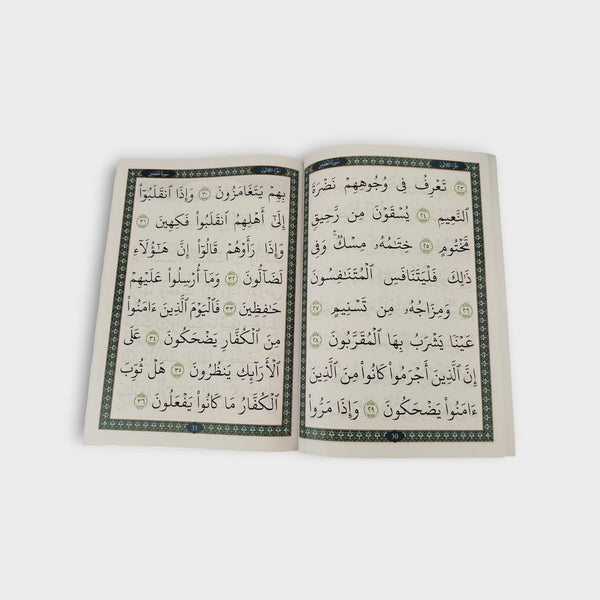 سورة المطففين
٢٣ تَعْرِفُ فِى وُجُوهِهِمْ نَضْرَةَ
ٱلنَّعِيمِ ٢٤ يُسْقَوْنَ مِن رَّحِيقٍ
مَّخْتُومٍ ٢٥ خِتَٰمُهُۥ مِسْكٌ ۚ وَفِى
ذَٰلِكَ فَلْيَتَنَافَسِ ٱلْمُتَنَٰفِسُونَ
٢٦ وَمِزَاجُهُۥ مِن تَسْنِيمٍ ٢٧
عَيْنًا يَشْرَبُ بِهَا ٱلْمُقَرَّبُونَ ٢٨
إِنَّ ٱلَّذِينَ أَجْرَمُوا۟ كَانُوا۟ مِنَ ٱلَّذِينَ
ءَامَنُوا۟ يَضْحَكُونَ ٢٩ وَإِذَا مَرُّوا۟
30
سورة المطففين
بِهِمْ يَتَغَامَزُونَ ٣٠ وَإِذَا ٱنقَلَبُوٓا۟
إِلَىٰٓ أَهْلِهِمُ ٱنقَلَبُوا۟ فَكِهِينَ ٣١
وَإِذَا رَأَوْهُمْ قَالُوٓا۟ إِنَّ هَٰٓؤُلَآءِ
لَضَآلُّونَ ٣٢ وَمَآ أُرْسِلُوا۟ عَلَيْهِمْ
حَٰفِظِينَ ٣٣ فَٱلْيَوْمَ ٱلَّذِينَ ءَامَنُوا۟
مِنَ ٱلْكُفَّارِ يَضْحَكُونَ ٣٤ عَلَى
ٱلْأَرَآئِكِ يَنظُرُونَ ٣٥ هَلْ ثُوِّبَ
ٱلْكُفَّارُ مَا كَانُوا۟ يَفْعَلُونَ ٣٦
31